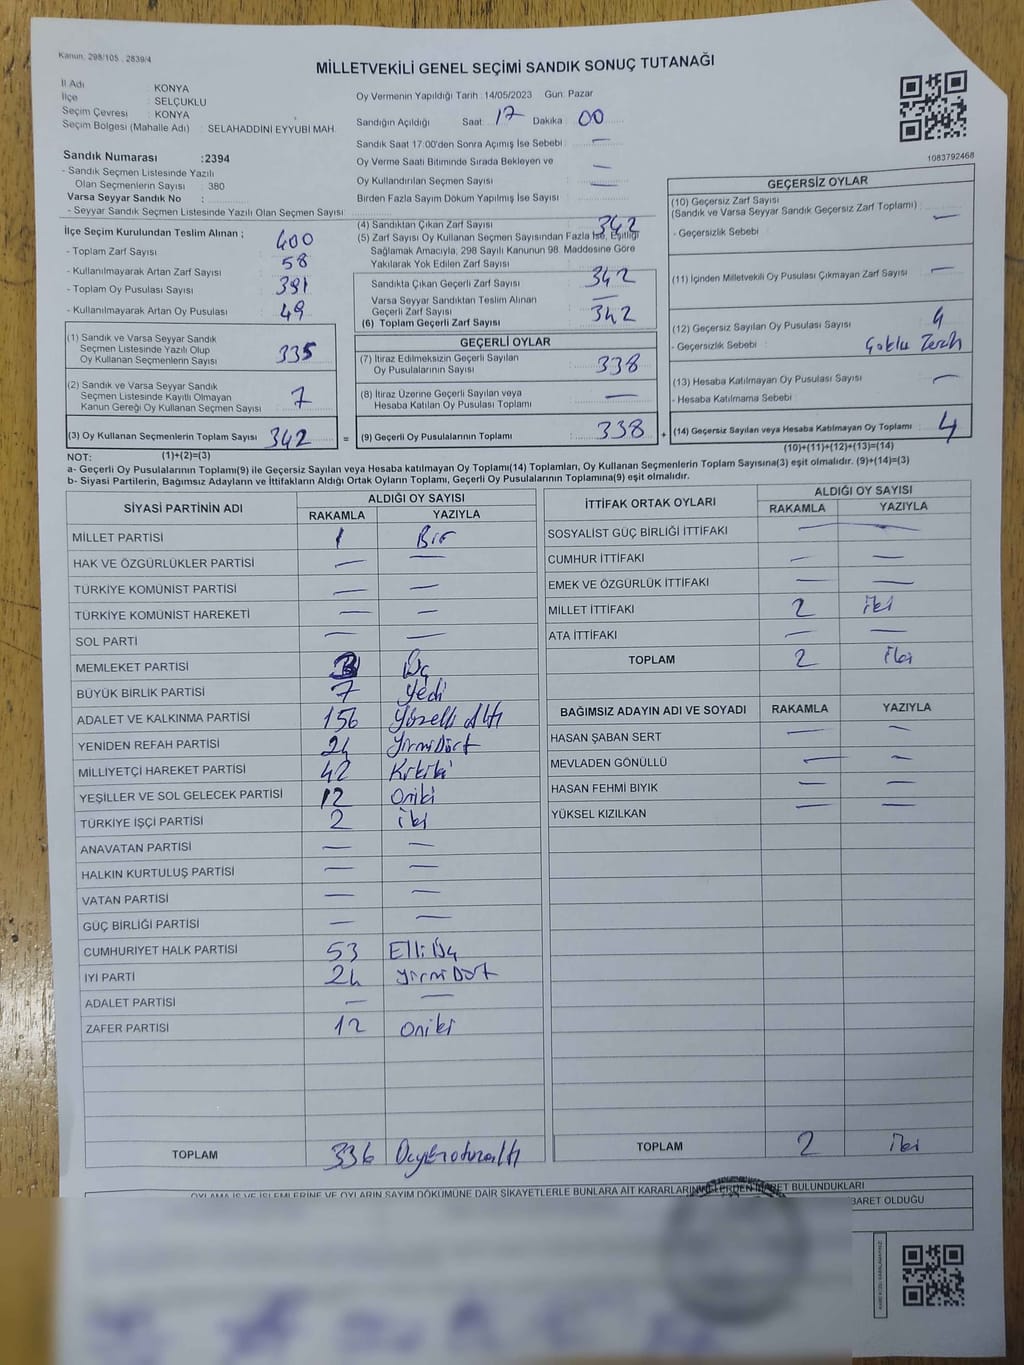 Kanun: 298/105 , 2839/4
MİLLETVEKİLİ GENEL SEÇİMİ SANDIK SONUÇ TUTANAĞI
İl Adı KONYA
İlçe : SELÇUKLU
Seçim Çevresi : KONYA
Seçim Bölgesi (Mahalle Adı) : SELAHADDİNİ EYYUBİ MAH.
Sandık Numarası :2394
- Sandık Seçmen Listesinde Yazılı
Olan Seçmenlerin Sayısı : 380
Varsa Seyyar Sandık No :
- Seyyar Sandık Seçmen Listesinde Yazılı Olan Seçmen Sayısı:
Oy Vermenin Yapıldığı Tarih :14/05/2023 Gün: Pazar
Sandığın Açıldığı Saat: 17 Dakika : 00
Sandık Saat 17:00'den Sonra Açımış İse Sebebi : —
Oy Verme Saati Bitiminde Sırada Bekleyen ve
Oy Kullandırılan Seçmen Sayısı : —
Birden Fazla Sayım Döküm Yapılmış İse Sayısı : —
1083792468
İlçe Seçim Kurulundan Teslim Alınan ;
- Toplam Zarf Sayısı : 400
- Kullanılmayarak Artan Zarf Sayısı : 58
- Toplam Oy Pusulası Sayısı : 391
- Kullanılmayarak Artan Oy Pusulası : 49
(1) Sandık ve Varsa Seyyar Sandık
Seçmen Listesinde Yazılı Olup
Oy Kullanan Seçmenlerin Sayısı : 335
(2) Sandık ve Varsa Seyyar Sandık
Seçmen Listesinde Kayıtlı Olmayan
Kanun Gereği Oy Kullanan Seçmen Sayısı : 7
(3) Oy Kullanan Seçmenlerin Toplam Sayısı : 342
(1)+(2)=(3)
(4) Sandıktan Çıkan Zarf Sayısı : 342
(5) Zarf Sayısı Oy Kullanan Seçmen Sayısından Fazla İse, Eşitliği
Sağlamak Amacıyla, 298 Sayılı Kanunun 98. Maddesine Göre
Yakılarak Yok Edilen Zarf Sayısı :
Sandıkta Çıkan Geçerli Zarf Sayısı : 342
Varsa Seyyar Sandıktan Teslim Alınan
Geçerli Zarf Sayısı : —
(6) Toplam Geçerli Zarf Sayısı : 342
GEÇERLİ OYLAR
(7) İtiraz Edilmeksizin Geçerli Sayılan
Oy Pusulalarının Sayısı : 338
(8) İtiraz Üzerine Geçerli Sayılan veya
Hesaba Katılan Oy Pusulaları Toplamı : —
= (9) Geçerli Oy Pusulalarının Toplamı : 338
GEÇERSİZ OYLAR
(10) Geçersiz Zarf Sayısı
(Sandık ve Varsa Seyyar Sandık Geçersiz Zarf Toplamı) : —
- Geçersizlik Sebebi :
(11) İçinden Milletvekili Oy Pusulası Çıkmayan Zarf Sayısı : —
(12) Geçersiz Sayılan Oy Pusulası Sayısı : 4
- Geçersizlik Sebebi : Çoklu Tercih
(13) Hesaba Katılmayan Oy Pusulası Sayısı : —
- Hesaba Katılmama Sebebi :
+ (14) Geçersiz Sayılan veya Hesaba Katılmayan Oy Toplamı : 4
(10)+(11)+(12)+(13)=(14)
NOT:
a- Geçerli Oy Pusulalarının Toplamı(9) ile Geçersiz Sayılan veya Hesaba katılmayan Oy Toplamı(14) Toplamları, Oy Kullanan Seçmenlerin Toplam Sayısına(3) eşit olmalıdır. (9)+(14)=(3)
b- Siyasi Partilerin, Bağımsız Adayların ve İttifakların Aldığı Ortak Oyların Toplamı, Geçerli Oy Pusulalarının Toplamına(9) eşit olmalıdır.
SİYASİ PARTİNİN ADI ALDIĞI OY SAYISI
RAKAMLA YAZIYLA
MİLLET PARTİSİ 1 Bir
HAK VE ÖZGÜRLÜKLER PARTİSİ — —
TÜRKİYE KOMÜNİST PARTİSİ — —
TÜRKİYE KOMÜNİST HAREKETİ — —
SOL PARTİ — —
MEMLEKET PARTİSİ 3 Üç
BÜYÜK BİRLİK PARTİSİ 7 Yedi
ADALET VE KALKINMA PARTİSİ 156 Yüzelli Altı
YENİDEN REFAH PARTİSİ 24 Yirmi Dört
MİLLİYETÇİ HAREKET PARTİSİ 42 Kırkiki
YEŞİLLER VE SOL GELECEK PARTİSİ 12 Oniki
TÜRKİYE İŞÇİ PARTİSİ 2 iki
ANAVATAN PARTİSİ — —
HALKIN KURTULUŞ PARTİSİ — —
VATAN PARTİSİ — —
GÜÇ BİRLİĞİ PARTİSİ — —
CUMHURİYET HALK PARTİSİ 53 Elli Üç
İYİ PARTİ 24 Yirmi Dört
ADALET PARTİSİ — —
ZAFER PARTİSİ 12 oniki
TOPLAM 336 Üçyüzotuzaltı
İTTİFAK ORTAK OYLARI ALDIĞI OY SAYISI
RAKAMLA YAZIYLA
SOSYALİST GÜÇ BİRLİĞİ İTTİFAKI — —
CUMHUR İTTİFAKI — —
EMEK VE ÖZGÜRLÜK İTTİFAKI — —
MİLLET İTTİFAKI 2 iki
ATA İTTİFAKI — —
TOPLAM 2 iki
BAĞIMSIZ ADAYIN ADI VE SOYADI RAKAMLA YAZIYLA
HASAN ŞABAN SERT — —
MEVLADEN GÖNÜLLÜ — —
HASAN FEHMİ BIYIK — —
YÜKSEL KIZILKAN — —
TOPLAM 2 iki
OYLAMA İŞ VE İŞLEMLERİNE VE OYLARIN SAYIM DÖKÜMÜNE DAİR ŞİKAYETLERLE BUNLARA AİT KARARLARIN NELERDEN İBARET BULUNDUKLARI
BARET OLDUĞU